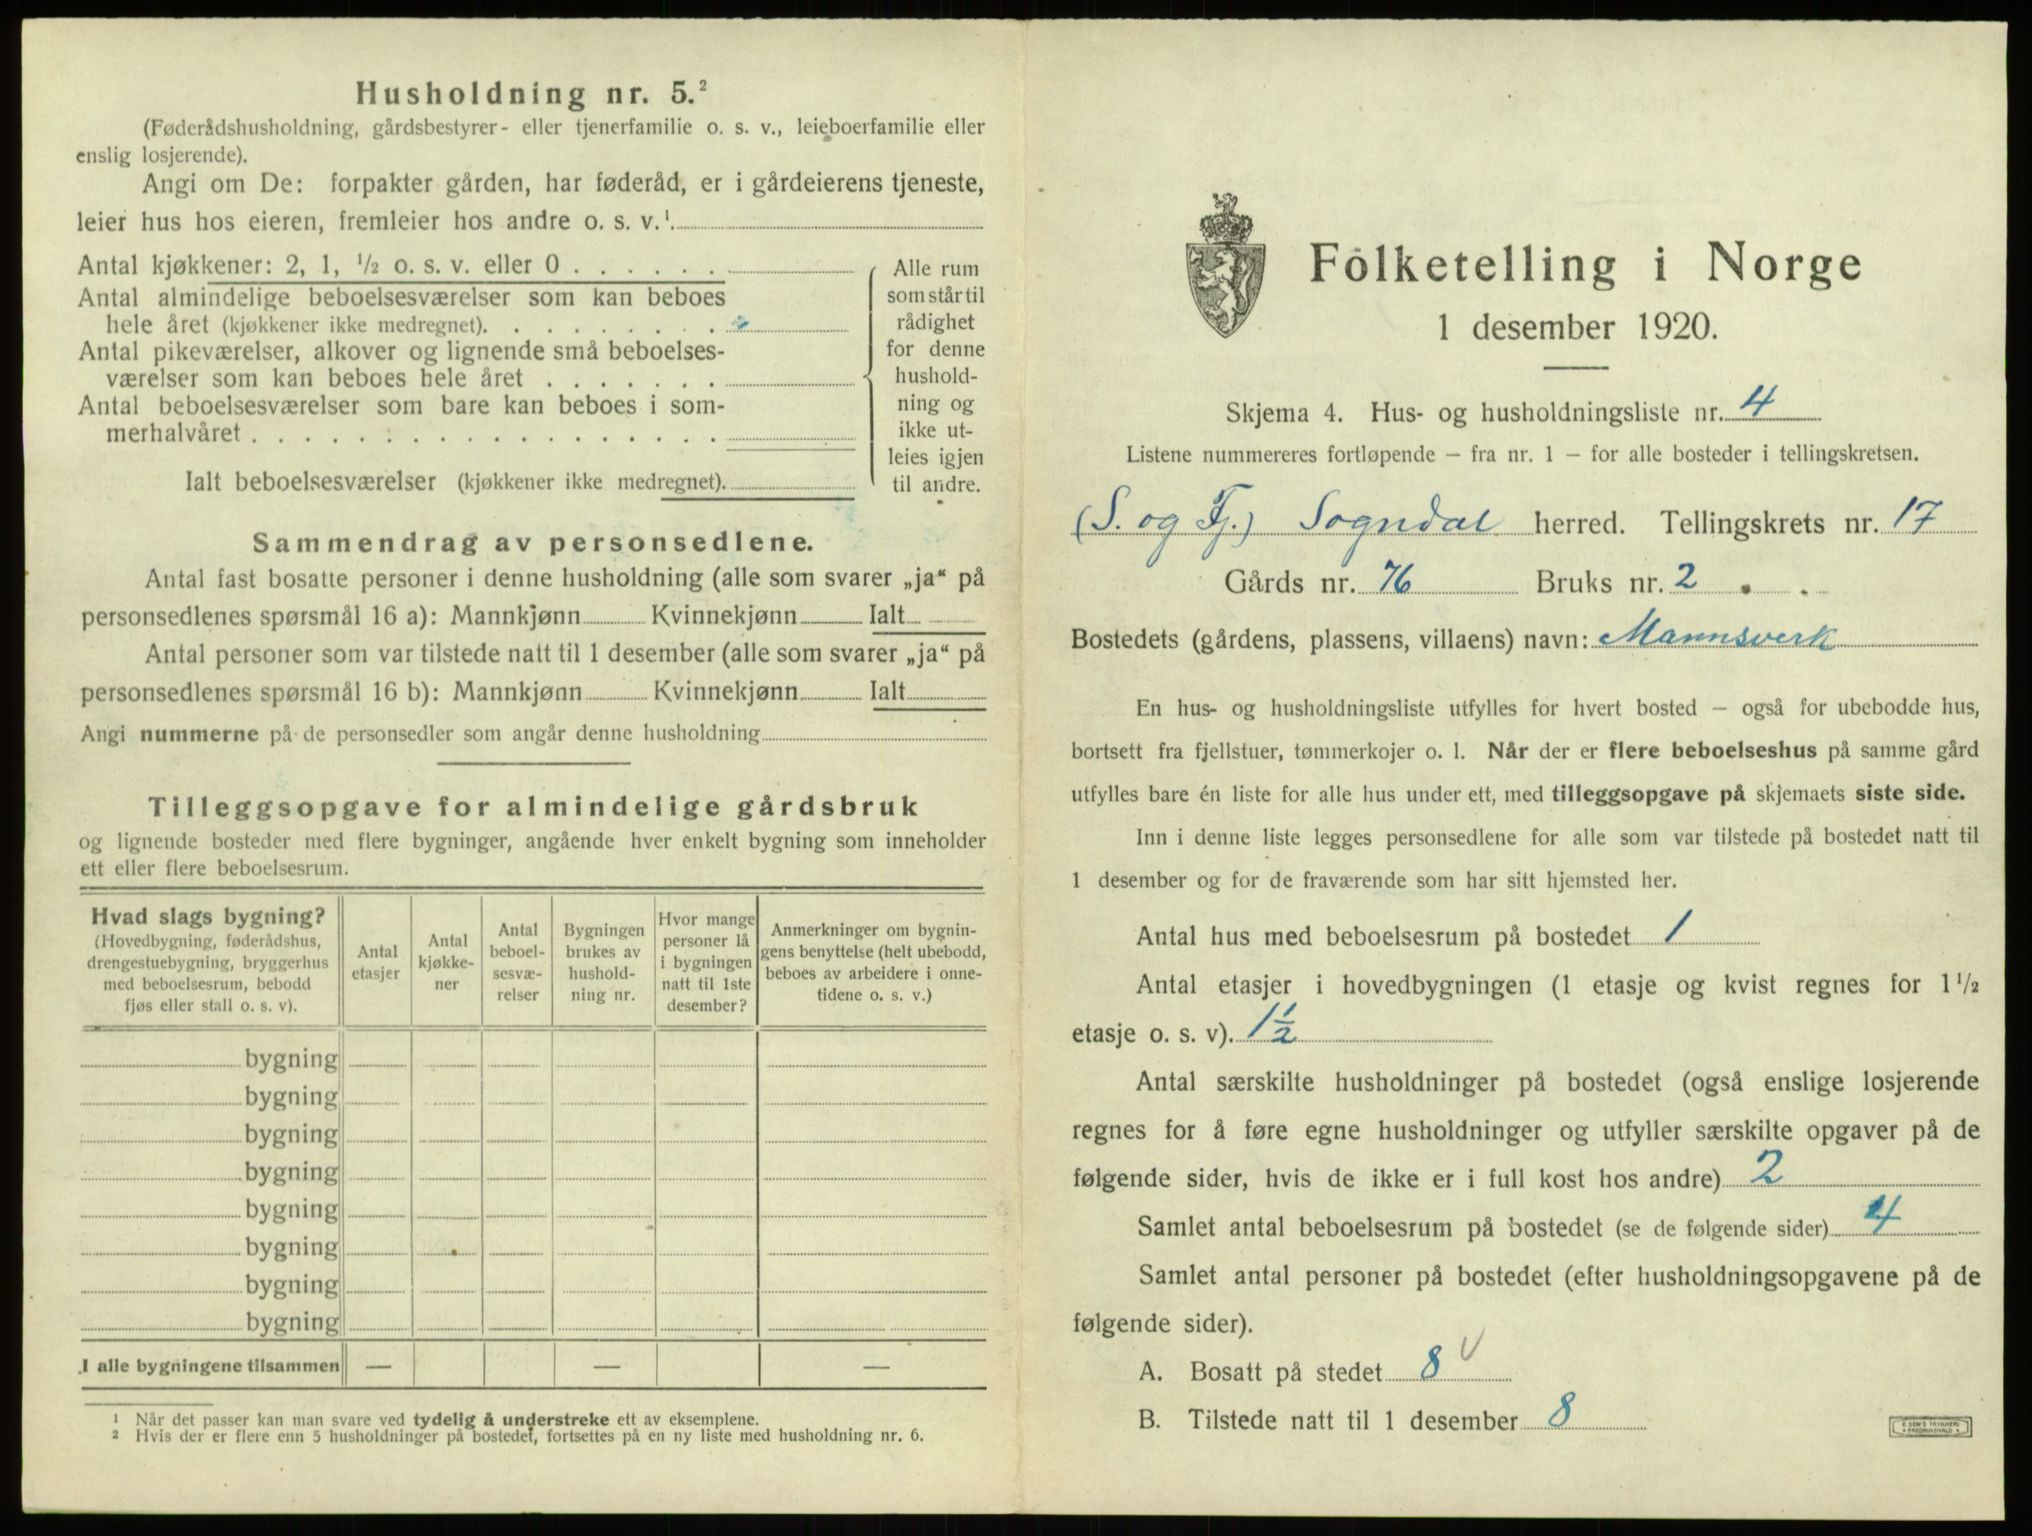 Husholdning nr. 5.²
(Føderådshusholdning, gårdsbestyrer- eller tjenerfamilie o. s. v., leieboerfamilie eller
enslig losjerende).
Angi om De: forpakter gården, har føderåd, er i gårdeierens tjeneste,
leier hus hos eieren, fremleier hos andre o. s. v.¹.
Antal kjøkkener: 2, 1, ½ o. s. v. eller 0 . . . . . .
Antal almindelige beboelsesværelser som kan beboes
hele året (kjøkkener ikke medregnet). . . . . . . . .
Antal pikeværelser, alkover og lignende små beboelses-
værelser som kan beboes hele året . . . . . . .
Antal beboelsesværelser som bare kan beboes i som-
merhalvåret . . . . . . . . . . . . . . . . . .
Ialt beboelsesværelser (kjøkkener ikke medregnet).
Alle rum
som står til
rådighet
for denne
hushold-
ning og
ikke ut-
leies igjen
til andre.
Sammendrag av personsedlene.
Antal fast bosatte personer i denne husholdning (alle som svarer „ja“ på
personsedlenes spørsmål 16 a): Mannkjønn Kvinnekjønn Ialt
Antal personer som var tilstede natt til 1 desember (alle som svarer „ja“ på
personsedlenes spørsmål 16 b): Mannkjønn Kvinnekjønn Ialt
Angi nummerne på de personsedler som angår denne husholdning
Tilleggsopgave for almindelige gårdsbruk
og lignende bosteder med flere bygninger, angående hver enkelt bygning som inneholder
ett eller flere beboelsesrum.
Hvad slags bygning?
(Hovedbygning, føderådshus,
drengestuebygning, bryggerhus
med beboelsesrum, bebodd
fjøs eller stall o. s. v).
Antal
etasjer
Antal
kjøkke-
ner
Antal
beboel-
sesvæ-
relser
Bygningen
brukes av
hushold-
ning nr.
Hvor mange
personer lå
i bygningen
natt til 1ste
desember?
Anmerkninger om bygnin-
gens benyttelse (helt ubebodd,
beboes av arbeidere i onne-
tidene o. s. v.)
bygning
bygning
bygning
bygning
bygning
bygning
bygning
bygning
I alle bygningene tilsammen — — —
¹ Når det passer kan man svare ved tydelig å understreke ett av eksemplene.
² Hvis der er flere enn 5 husholdninger på bostedet, fortsettes på en ny liste med husholdning nr. 6.
Folketelling i Norge
1 desember 1920.
Skjema 4. Hus- og husholdningsliste nr. 4
Listene nummereres fortløpende – fra nr. 1 – for alle bosteder i tellingskretsen.
(S. og Fj.) Sogndal herred. Tellingskrets nr. 17
Gårds nr. 76 Bruks nr. 2
Bostedets (gårdens, plassens, villaens) navn: Mannsverk
En hus- og husholdningsliste utfylles for hvert bosted – også for ubebodde hus,
bortsett fra fjellstuer, tømmerkojer o. l. Når der er flere beboelseshus på samme gård
utfylles bare én liste for alle hus under ett, med tilleggsopgave på skjemaets siste side.
Inn i denne liste legges personsedlene for alle som var tilstede på bostedet natt til
1 desember og for de fraværende som har sitt hjemsted her.
Antal hus med beboelsesrum på bostedet 1
Antal etasjer i hovedbygningen (1 etasje og kvist regnes for 1½
etasje o. s. v). 1½
Antal særskilte husholdninger på bostedet (også enslige losjerende
regnes for å føre egne husholdninger og utfyller særskilte opgaver på de
følgende sider, hvis de ikke er i full kost hos andre) 2
Samlet antal beboelsesrum på bostedet (se de følgende sider) 4
Samlet antal personer på bostedet (efter husholdningsopgavene på de
følgende sider).
A. Bosatt på stedet 8 v
B. Tilstede natt til 1 desember 8
E. SEM'S TRYKKERI
FREDRIKSHALD